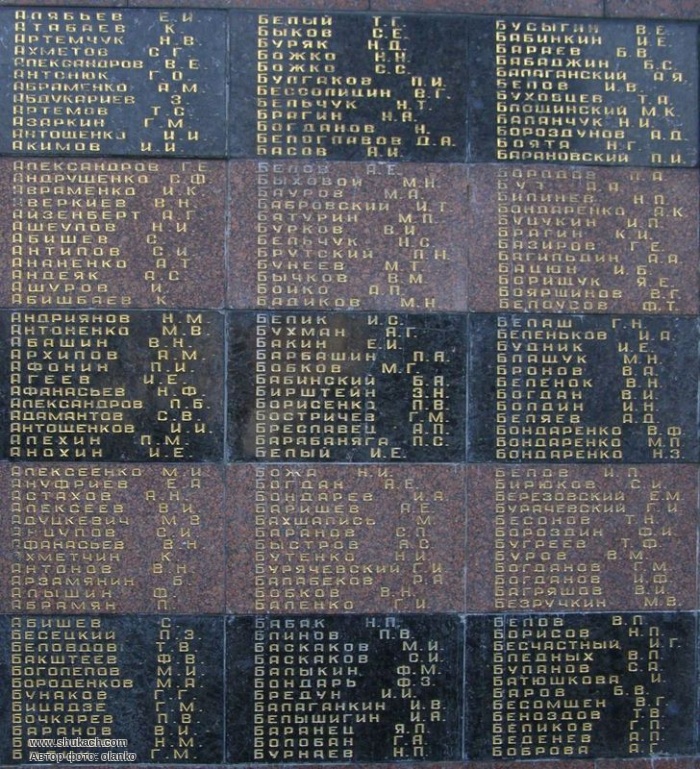 АЛЯБЬЕВ Е.И.
АТАБАЕВ К.
АРТЕМЧУК Н.В.
АХМЕТОВ С.Г.
АЛЕКСАНДРОВ В.Е.
АНТОНЮК Г.О.
АБРАМЕНКО А.М.
АБДУКАРИЕВ З.
АРТЕМОВ Т.С.
АЗАРКИН Г.М.
АНТОЩЕНКО И.И.
АКИМОВ И.И.
АЛЕКСАНДРОВ Г.Е.
АНДРУЩЕНКО С.Ф.
АВРАМЕНКО И.К.
АВЕРКИЕВ В.Н.
АЙЗЕНБЕРТ А.Г.
АШЕУЛОВ Н.И.
АБИШЕВ С.
АНТИПОВ С.И.
АНАНЕНКО А.Т.
АНДЕЯК А.С.
АШУРОВ И.
АБИШБАЕВ К.
АНДРИЯНОВ Н.М.
АНТОНЕНКО М.В.
АБАШИН В.Н.
АРХИПОВ А.М.
АФОНИН П.И.
АГЕЕВ И.Е.
АФАНАСЬЕВ Н.Ф.
АЛЕКСАНДРОВ П.Б.
АДАМАНТОВ С.В.
АНТОЩЕНКОВ И.И.
АЛЕХИН П.М.
АНОХИН И.Е.
АЛЕКСЕЕНКО М.И.
АНУФРИЕВ Е.А.
АСТАХОВ А.Н.
АЛЕКСЕЕВ В.И.
АДУЦКЕВИЧ М.В.
АРЦУПОВ С.И.
АФАНАСЬЕВ В.Н.
АХМЕТЧИН К.
АНТОНОВ В.Н.
АРЗАМЯНИН Б.
АЛЫШИН Ф.
АБРАМЯН П.
АБИШЕВ С.
БЕСЕЦКИЙ П.З.
БЕЛОВДОВ Т.В.
БАКШТЕЕВ Ф.В.
БОГОЛЕПОВ М.И.
БОРОДЕНКОВ М.А.
БУНАКОВ Г.Г.
БИЦАДЗЕ Г.М.
БОЧКАРЕВ П.В.
БАРАНОВ В.И.
Н.М.
Г.М.
БЕЛЫЙ Т.Г.
БЫКОВ С.Е.
БУРЯК Н.Д.
БОЖКО Н.Н.
БОЖКО С.С.
БУЛГАКОВ П.И.
БЕССОЛИЦИН В.Г.
БЕЛЬЧУК Н.Т.
БРАГИН Н.А.
БОГДАНОВ Н.
БЕЛОГЛАВОВ Д.А.
БАСОВ А.И.
БЕЛОВ А.Е.
БЫХОВОЙ М.Н.
БАУРОВ М.А.
БАБРОВСКИЙ И.Т.
БАТУРИН М.П.
БУРКОВ В.И.
БЕЛЬЧУК Н.С.
БРУТСКИЙ Л.Н.
БУНЕЕВ М.Т.
БЫЧКОВ В.М.
БОЙКО А.П.
БАДИКОВ М.Н.
БЕЛИК И.С.
БУХМАН А.Г.
БАКИН Е.И.
БАРБАШИН П.А.
БОБКОВ М.Г.
БАБИНСКИЙ Б.А.
БИРШТЕЙН З.Н.
БОРИСЕНКО П.В.
БОСТРИЧЕВ Г.М.
БРЕСЛАВЕЦ А.П.
БАРАБАНЯГА П.С.
БЕЛЫЙ И.Е.
БОЖА Н.И.
БОГДАН А.Е.
БОНДАРЕВ И.А.
БАРИШЕВ А.Г.
БАХШАЛИСЬ М.
БАРАНОВ С.П.
БЫСТРОВ А.С.
БУТЕНКО Н.И.
БУРЯЧЕВСКИЙ Г.И.
БАЛАБЕКОВ Р.А.
БОБКОВ В.Н.
БАЛЕНКО Г.И.
БАБАК Н.П.
БЛИНОВ П.В.
БАСКАКОВ М.И.
БАСКАКОВ С.И.
БАЛЫКИН Ф.М.
БОНДАРЬ Ф.З.
БРЕДУН И.И.
БАЛАГАНКИН И.В.
БЕЛЫШИГИН И.А.
БАРАНЕЦ Я.П.
БОЛОБАН Г.А.
БУРНАЕВ Н.П.
БУСЫГИН В.Е.
БАБИНКИН И.Е.
БАРАЕВ Б.В.
БАБАДЖИН Б.С.
БАЛАГАНСКИЙ А.Я.
БЕЛОВ И.В.
БУХОВЦЕВ Т.А.
БЛОШИНСКИЙ М.К.
БАЛАНЧУК Н.И.
БОРОЗДУНОВ А.Д.
БОЯТА Н.Г.
БАРАНОВСКИЙ П.И.
БОРОДОВ П.А.
БУТ А.А.
БИЛИНЕВ Н.П.
БОНДАРЕНКО А.К.
БУЦУКИН И.П.
БРАГИН К.И.
БАЗИРОВ Г.Е.
БАГИЛЬДИН А.А.
БАЦЮН И.Б.
БОРИЩУК Я.Е.
БОЯРШИНОВ В.Г.
БЕЛОУСОВ Ф.Т.
БЕЛАШ Г.Н.
БЕЛЕНЬКОВ И.А.
БУДНИК И.Е.
БЛАЩУК М.Н.
БРОНОВ В.А.
БЕЛЕНОК В.Н.
БОГДАН В.И.
БОЛДИН И.Н.
БЕЛЯЕВ А.Д.
БОНДАРЕНКО В.Ф.
БОНДАРЕНКО М.П.
БОНДАРЕНКО Н.З.
БЕЛОВ И.П.
БИРЮКОВ С.И.
БЕРЕЗОВСКИЙ Е.М.
БУРАЧЕВСКИЙ Г.И.
БЕСОНОВ Т.Н.
БОРОЗДИН Ф.И.
БУГРЕЕВ Т.Ф.
БУРОВ В.М.
БОГДАНОВ Г.М.
БОГДАНОВ И.Ф.
БАГРЯШОВ В.И.
БЕЗРУЧКИН М.В.
БЕЛОВ В.П.
БОРИСОВ Н.П.
БЕСЧАСТНЫЙ И.Г.
БЛЕДНЫХ В.П.
БУЛАНОВ С.А.
БАТЮШКОВА И.
БАРОВ Б.В.
БЕСОМЩЕН В.Г.
БЕНОЗДОВ Т.В.
БЕЛИКОВ Г.П.
БЕДНОВ Г.А.
БОБРОВА А.Г.
www.shukach.com
Автор фото: olanko